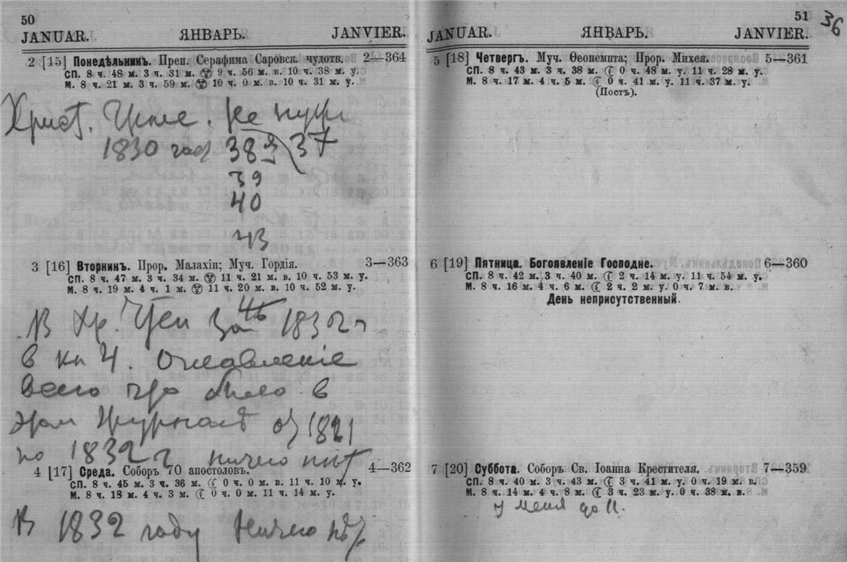 50
JANUAR. ЯНВАРЬ. JANVIER.
2 [15] Понедѣльникъ. Преп. Серафима Саровск. чудотв. 2—364
СП. 8 ч. 48 м. 3 ч. 31 м. 9 ч. 56 м. в. 10 ч. 38 м. у.
М. 8 ч. 21 м. 3 ч. 59 м. 10 ч. 0 м. в. 10 ч. 31 м. у.
Христ.
1830 год 38 37
39
40
43
3 [16] Вторникъ. Прор. Малахіи; Муч. Гордія. 3—363
СП. 8 ч. 47 м. 3 ч. 34 м. 11 ч. 21 м. в. 10 ч. 53 м. у.
М. 8 ч. 19 м. 4 ч. 1 м. 11 ч. 20 м. в. 10 ч. 52 м. у.
В Хр. Чтен за 1832 г
в кн 4. Оглавленіе
всего что было в
этом журналѣ от 1821
по 1832 г ничего нѣт
4 [17] Среда. Соборъ 70 апостоловъ. 4—362
СП. 8 ч. 45 м. 3 ч. 36 м. 0 ч. 0 м. в. 11 ч. 10 м. у.
М. 8 ч. 18 м. 4 ч. 3 м. 0 ч. 0 м. 11 ч. 14 м. у.
В 1832 году ничего нѣт
51
36
JANUAR. ЯНВАРЬ. JANVIER.
5 [18] Четвергъ. Муч. Ѳеопемпта; Прор. Михея. 5—361
СП. 8 ч. 43 м. 3 ч. 38 м. 0 ч. 48 м. у. 11 ч. 28 м. у.
М. 8 ч. 17 м. 4 ч. 5 м. 0 ч. 41 м. у. 11 ч. 37 м. у.
(Постъ).
6 [19] Пятница. Богоявленіе Господне. 6—360
СП. 8 ч. 42 м. 3 ч. 40 м. 2 ч. 14 м. у. 11 ч. 54 м. у.
М. 8 ч. 16 м. 4 ч. 6 м. 2 ч. 2 м. у. 0 ч. 7 м. в.
День неприсутственный.
7 [20] Суббота. Соборъ Св. Іоанна Крестителя. 7—359
СП. 8 ч. 40 м. 3 ч. 43 м. 3 ч. 41 м. у. 0 ч. 19 м. в.
М. 8 ч. 14 м. 4 ч. 8 м. 3 ч. 23 м. у. 0 ч. 38 м. в.
у меня до